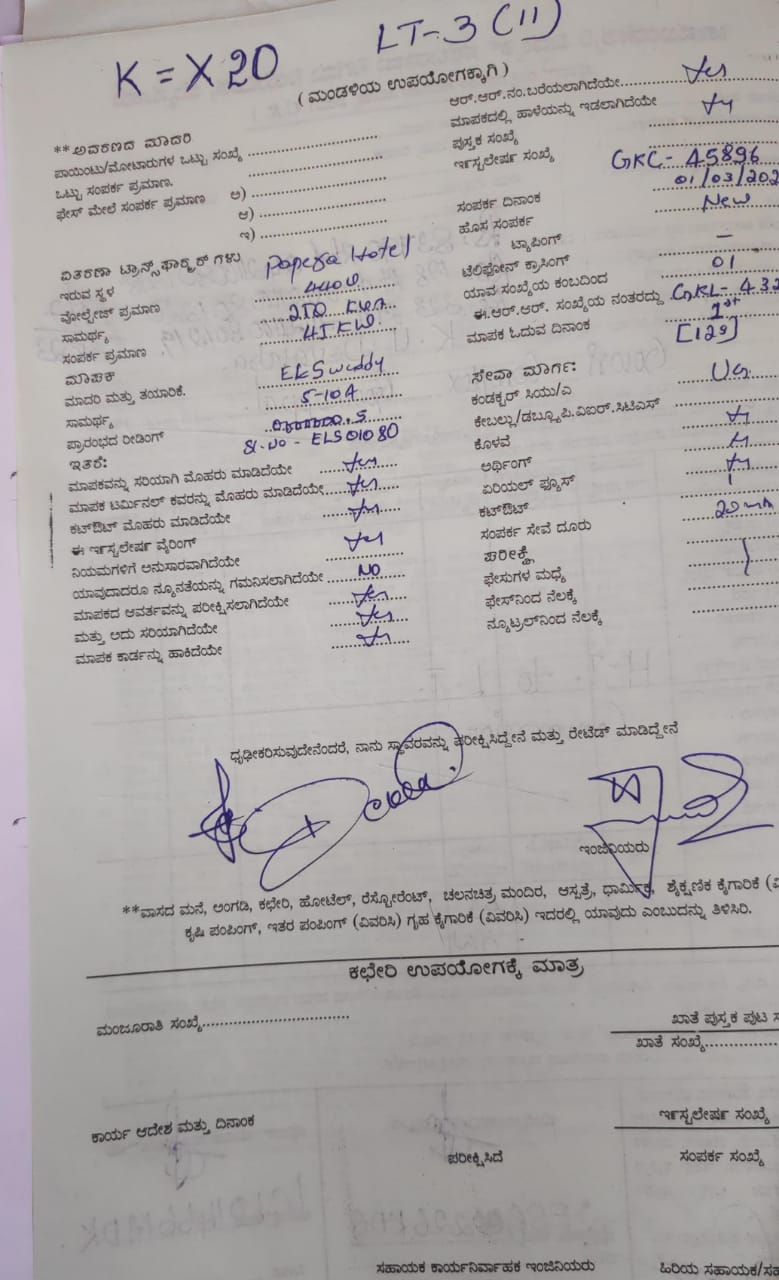 LT-3 (11)
K = X 20
( ಮಂಡಳಿಯ ಉಪಯೋಗಕ್ಕಾಗಿ )
**ಅವರಣದ ಮಾದರಿ
ಪಾಯಿಂಟು/ಮೋಟಾರುಗಳ ಒಟ್ಟು ಸಂಖ್ಯೆ
ಒಟ್ಟು ಸಂಪರ್ಕ ಪ್ರಮಾಣ.
ಫೇಸ್ ಮೇಲೆ ಸಂಪರ್ಕ ಪ್ರಮಾಣ ಅ)
ಆ)
ಇ)
ವಿತರಣಾ ಟ್ರಾನ್ಸ್‌ಫಾರ್ಮರ್‌ಗಳು
ಇರುವ ಸ್ಥಳ Hotel
ವೋಲ್ಟೇಜ್ ಪ್ರಮಾಣ 440V
ಸಾಮರ್ಥ್ಯ 250 KVA
ಸಂಪರ್ಕ ಪ್ರಮಾಣ 45KW
ಮಾಪಕ
ಮಾದರಿ ಮತ್ತು ತಯಾರಿಕೆ.
ಸಾಮರ್ಥ್ಯ 5-10A
ಪ್ರಾರಂಭದ ರೀಡಿಂಗ್
ಇತರೆ: Sl.No - ELS01080
ಮಾಪಕವನ್ನು ಸರಿಯಾಗಿ ಮೊಹರು ಮಾಡಿದೆಯೇ yes
ಮಾಪಕ ಟರ್ಮಿನಲ್ ಕವರನ್ನು ಮೊಹರು ಮಾಡಿದೆಯೇ yes
ಕಟ್‌ಔಟ್ ಮೊಹರು ಮಾಡಿದೆಯೇ yes
ಈ ಇನ್ಸ್ಟಲೇಷನ್ ವೈರಿಂಗ್
ನಿಯಮಗಳಿಗೆ ಅನುಸಾರವಾಗಿದೆಯೇ yes
ಯಾವುದಾದರೂ ನ್ಯೂನತೆಯನ್ನು ಗಮನಿಸಲಾಗಿದೆಯೇ NO
ಮಾಪಕದ ಆವರ್ತವನ್ನು ಪರೀಕ್ಷಿಸಲಾಗಿದೆಯೇ yes
ಮತ್ತು ಅದು ಸರಿಯಾಗಿದೆಯೇ yes
ಮಾಪಕ ಕಾರ್ಡನ್ನು ಹಾಕಿದೆಯೇ yes
ಆರ್.ಆರ್.ನಂ.ಬರೆಯಲಾಗಿದೆಯೇ yes
ಮಾಪಕದಲ್ಲಿ ಹಾಳೆಯನ್ನು ಇಡಲಾಗಿದೆಯೇ yes
ಪುಸ್ತಕ ಸಂಖ್ಯೆ
ಇನ್ಸ್ಟಲೇಷನ್ ಸಂಖ್ಯೆ GKL- 45896
ಸಂಪರ್ಕ ದಿನಾಂಕ 01/03/202
ಹೊಸ ಸಂಪರ್ಕ New
: ಟ್ಯಾಪಿಂಗ್
ಟೆಲಿಫೋನ್ ಕ್ರಾಸಿಂಗ್ —
ಯಾವ ಸಂಖ್ಯೆಯ ಕಂಬದಿಂದ 01
ಈ.ಆರ್.ಆರ್. ಸಂಖ್ಯೆಯ ನಂತರದ್ದು GKL- 432
ಮಾಪಕ ಓದುವ ದಿನಾಂಕ 1st
[129]
ಸೇವಾ ಮಾರ್ಗ:
ಕಂಡಕ್ಟರ್ ಸಿಯು/ಎ UG
ಕೇಬಲ್ಲು/ಡಬ್ಲ್ಯೂಪಿ.ವಿಐಆರ್.ಸಿಟಿಎಸ್
ಕೊಳವೆ yes
ಅರ್ಥಿಂಗ್ yes
ಏರಿಯಲ್ ಫ್ಯೂಸ್ yes
ಕಟ್‌ಔಟ್
ಸಂಪರ್ಕ ಸೇವೆ ದೂರು
ಪರೀಕ್ಷೆ
ಫೇಸುಗಳ ಮಧ್ಯೆ
ಫೇಸ್‌ನಿಂದ ನೆಲಕ್ಕೆ
ನ್ಯೂಟ್ರಲ್‌ನಿಂದ ನೆಲಕ್ಕೆ
ಧೃಢೀಕರಿಸುವುದೇನೆಂದರೆ, ನಾನು ಸ್ಥಾವರವನ್ನು ಪರೀಕ್ಷಿಸಿದ್ದೇನೆ ಮತ್ತು ರೇಟೆಡ್ ಮಾಡಿದ್ದೇನೆ
ಇಂಜಿನಿಯರು
**ವಾಸದ ಮನೆ, ಅಂಗಡಿ, ಕಛೇರಿ, ಹೋಟೆಲ್, ರೆಸ್ಟೋರೆಂಟ್, ಚಲನಚಿತ್ರ ಮಂದಿರ, ಆಸ್ಪತ್ರೆ, ಧಾರ್ಮಿಕ, ಶೈಕ್ಷಣಿಕ ಕೈಗಾರಿಕೆ
ಕೃಷಿ ಪಂಪಿಂಗ್, ಇತರ ಪಂಪಿಂಗ್ (ವಿವರಿಸಿ) ಗೃಹ ಕೈಗಾರಿಕೆ (ವಿವರಿಸಿ) ಇದರಲ್ಲಿ ಯಾವುದು ಎಂಬುದನ್ನು ತಿಳಿಸಿರಿ.
ಕಛೇರಿ ಉಪಯೋಗಕ್ಕೆ ಮಾತ್ರ
ಮಂಜೂರಾತಿ ಸಂಖ್ಯೆ
ಖಾತೆ ಪುಸ್ತಕ ಪುಟ
ಖಾತೆ ಸಂಖ್ಯೆ
ಕಾರ್ಯ ಆದೇಶ ಮತ್ತು ದಿನಾಂಕ
ಇನ್ಸ್ಟಲೇಷನ್ ಸಂಖ್ಯೆ
ಪರೀಕ್ಷಿಸಿದೆ
ಸಂಪರ್ಕ ಸಂಖ್ಯೆ
ಸಹಾಯಕ ಕಾರ್ಯನಿರ್ವಾಹಕ ಇಂಜಿನಿಯರು
ಹಿರಿಯ ಸಹಾಯಕ/